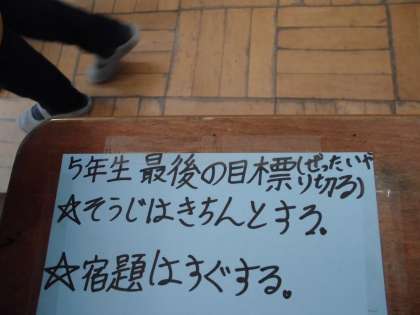 5年生 最後の目標(ぜったいやり切る)
☆そうじはきちんとする。
☆宿題はすぐする。